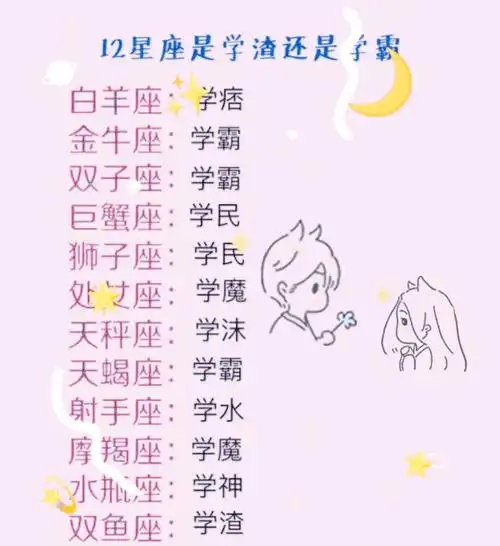 12星座是学渣还是学霸
白羊座：学痞
金牛座：学霸
双子座：学霸
巨蟹座：学民
狮子座：学民
处女座：学魔
天秤座：学沫
天蝎座：学霸
射手座：学水
摩羯座：学魔
水瓶座：学神
双鱼座：学渣